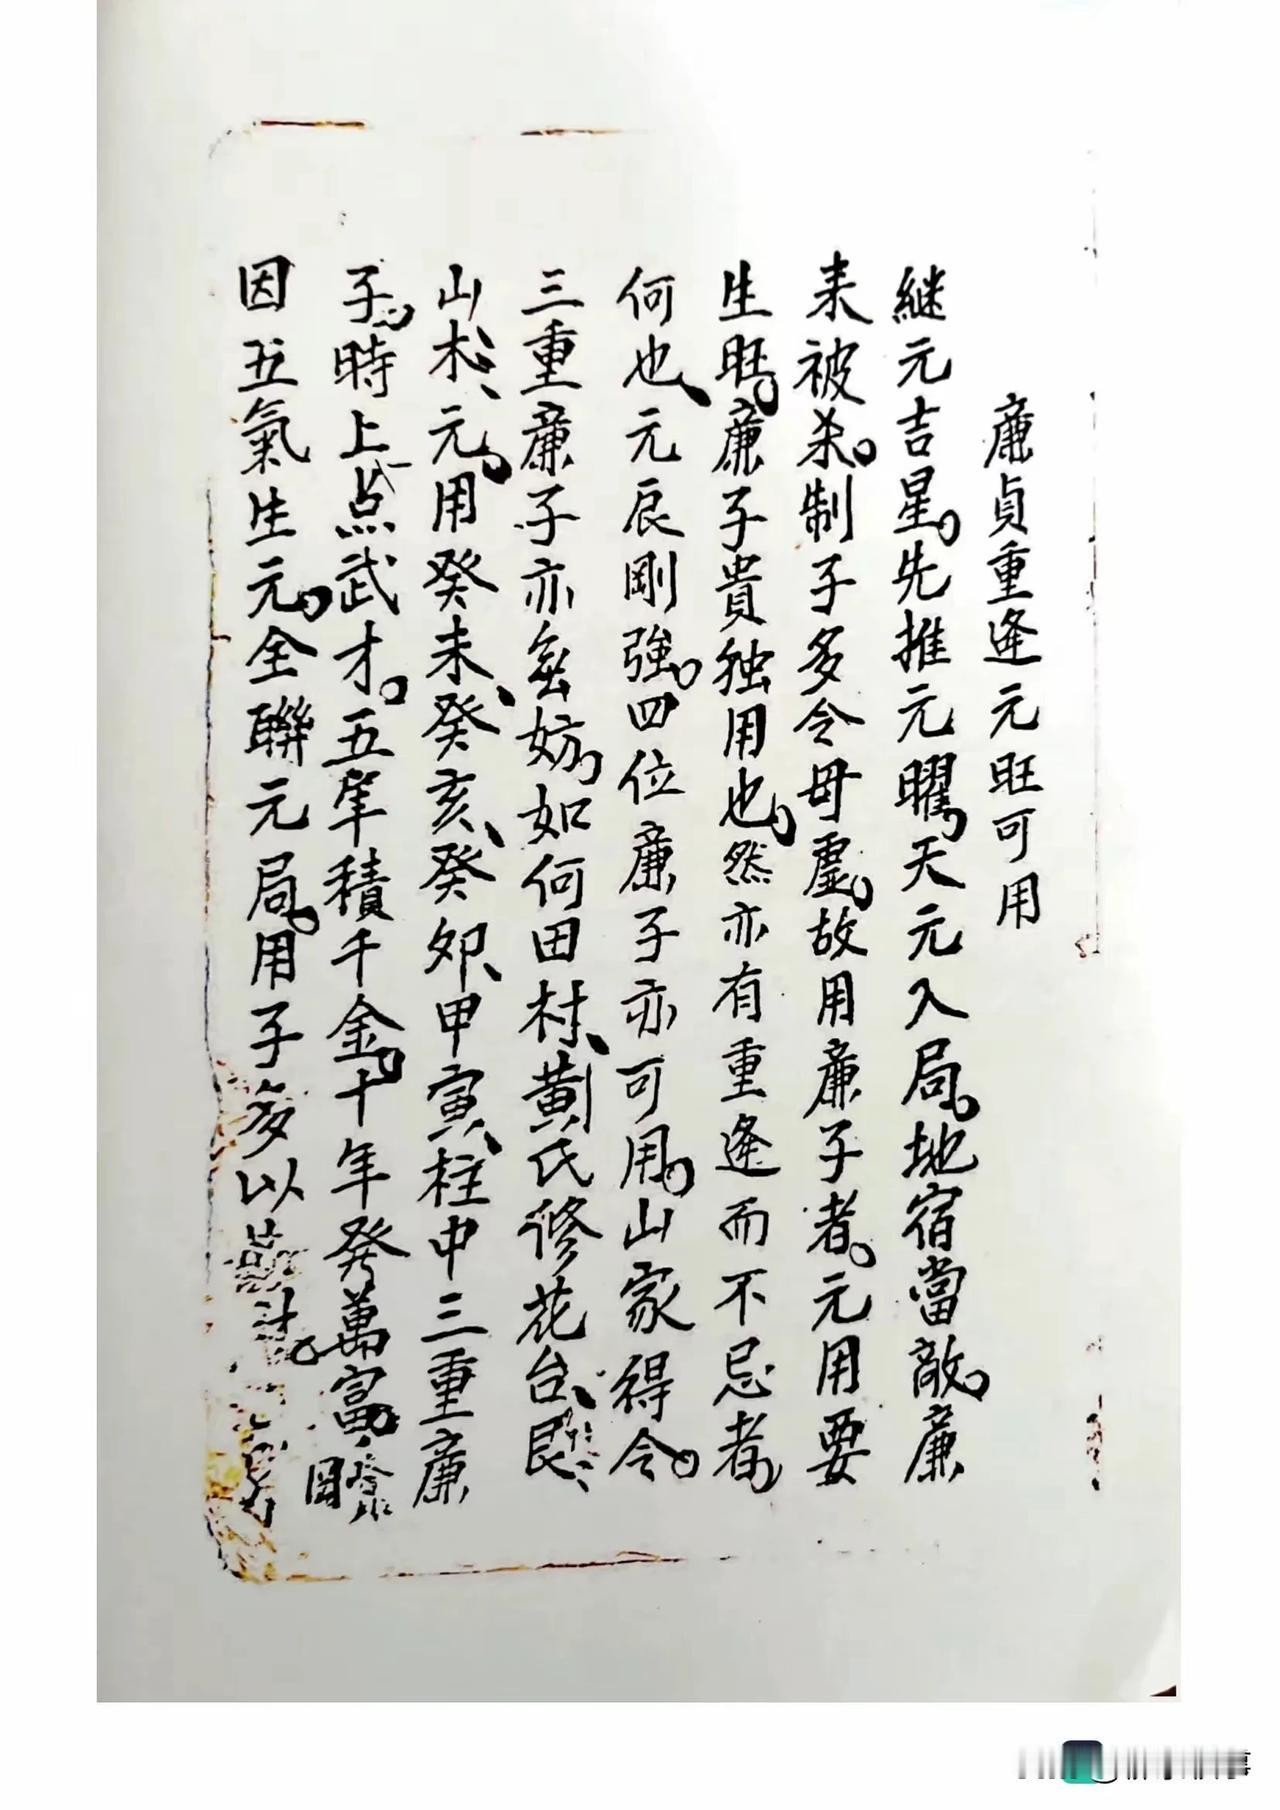 廉貞重逢元旺可用
継元吉星。先推元曜，天元入局。地宿當敵。廉
来被杀。制子多令母虛。故用廉子者。元用要
生旺。廉子貴独用也。然亦有重逢而不忌者，
何也、元辰剛強。四位廉子亦可用。山家得令。
三重廉子亦無妨。如何田村、黄氏修花台、艮
山木、元。用癸未、癸亥、癸卯、甲寅、柱中三重廉
子。時上点武才。五年積千金。十年癸萬富。
因五氣生元。全聯元局。用子多以